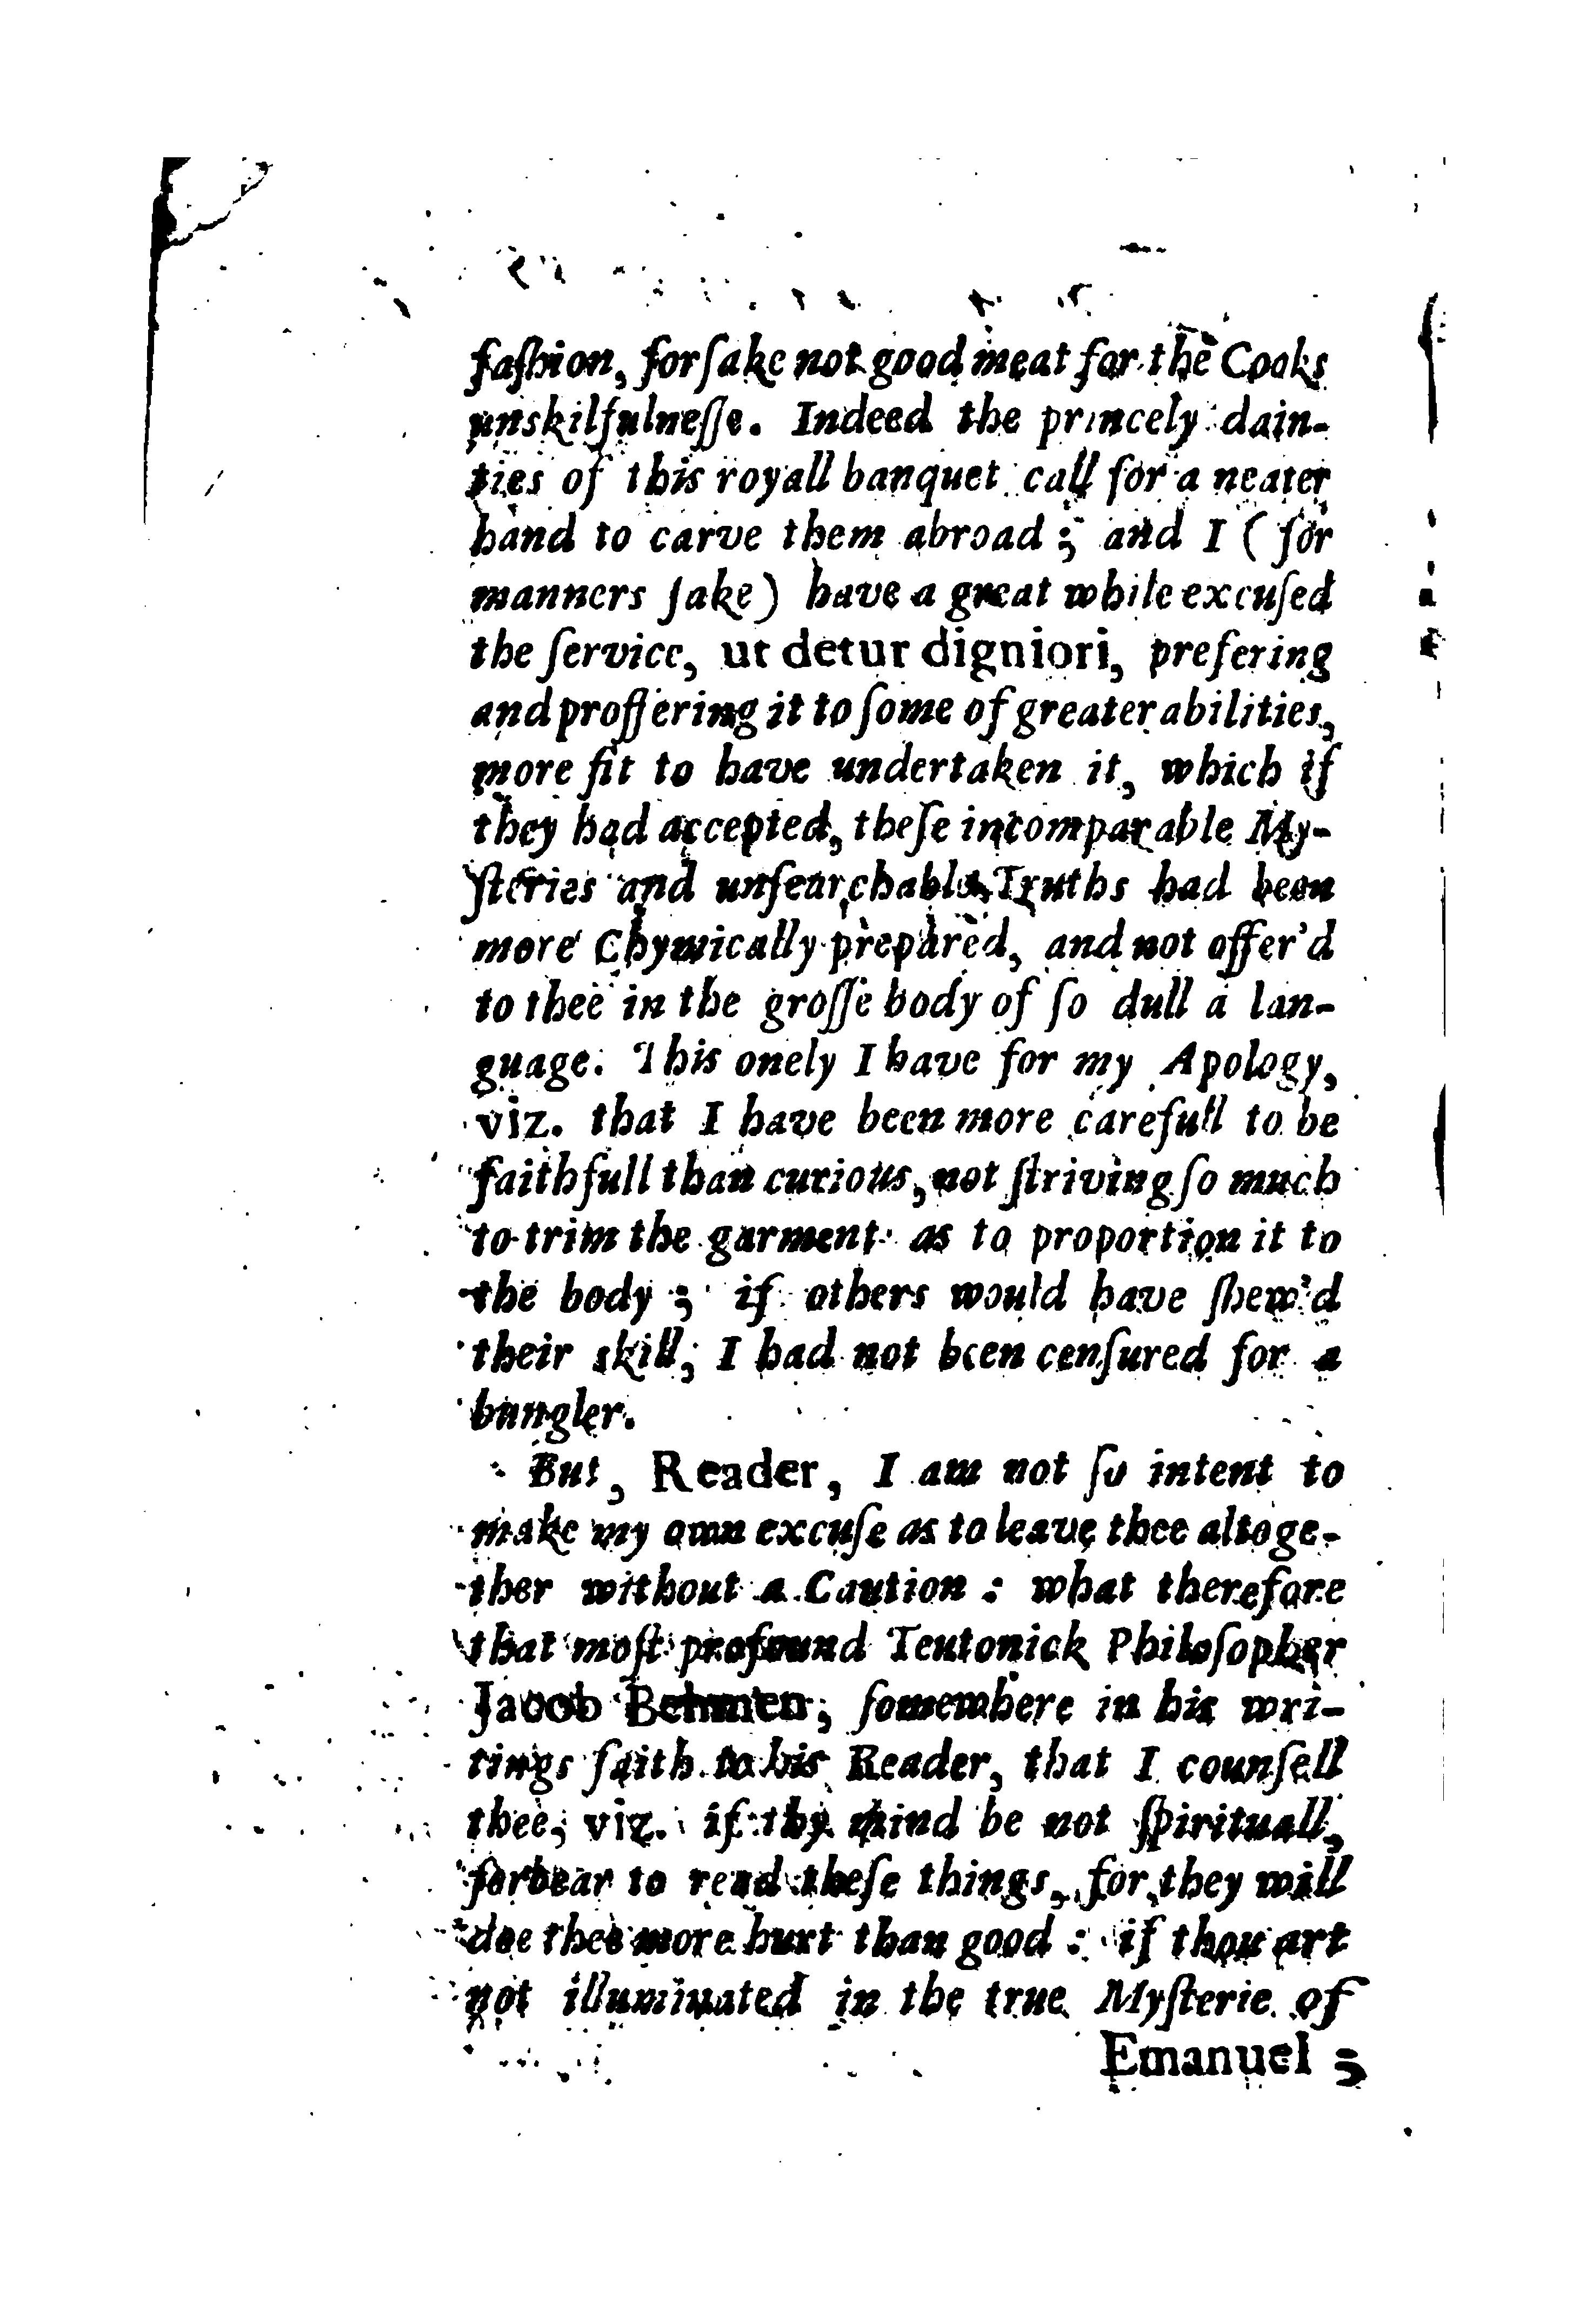 faſhion, forſake not good meat for the Cooks
unskilfulneſſe. Indeed the princely dain-
ties of this royall banquet call for a neater
hand to carve them abroad; and I (for
manners ſake) have a great while excuſed
the ſervice, ut detur digniori, prefering
and proffering it to ſome of greater abilities,
more fit to have undertaken it, which if
they had accepted, theſe incomparable My-
ſteries and unſearchable Truths had been
more Chymically prepared, and not offer'd
to thee in the groſſe body of ſo dull a lan-
guage. This onely I have for my Apology,
viz. that I have been more carefull to be
faithfull than curious, not ſtriving ſo much
to trim the garment as to proportion it to
the body; if others would have ſhew'd
their skill, I had not been cenſured for a
bungler.
But, Reader, I am not ſo intent to
make my own excuſe as to leave thee altoge-
ther without a Caution: what therefore
that moſt profound Teutonick Philoſopher
Jacob Behmen, ſomewhere in his wri-
tings ſaith to his Reader, that I counſell
thee, viz. if thy mind be not ſpirituall,
forbear to read theſe things, for they will
doe thee more hurt than good: if thou art
not illuminated in the true Myſterie of
Emanuel;